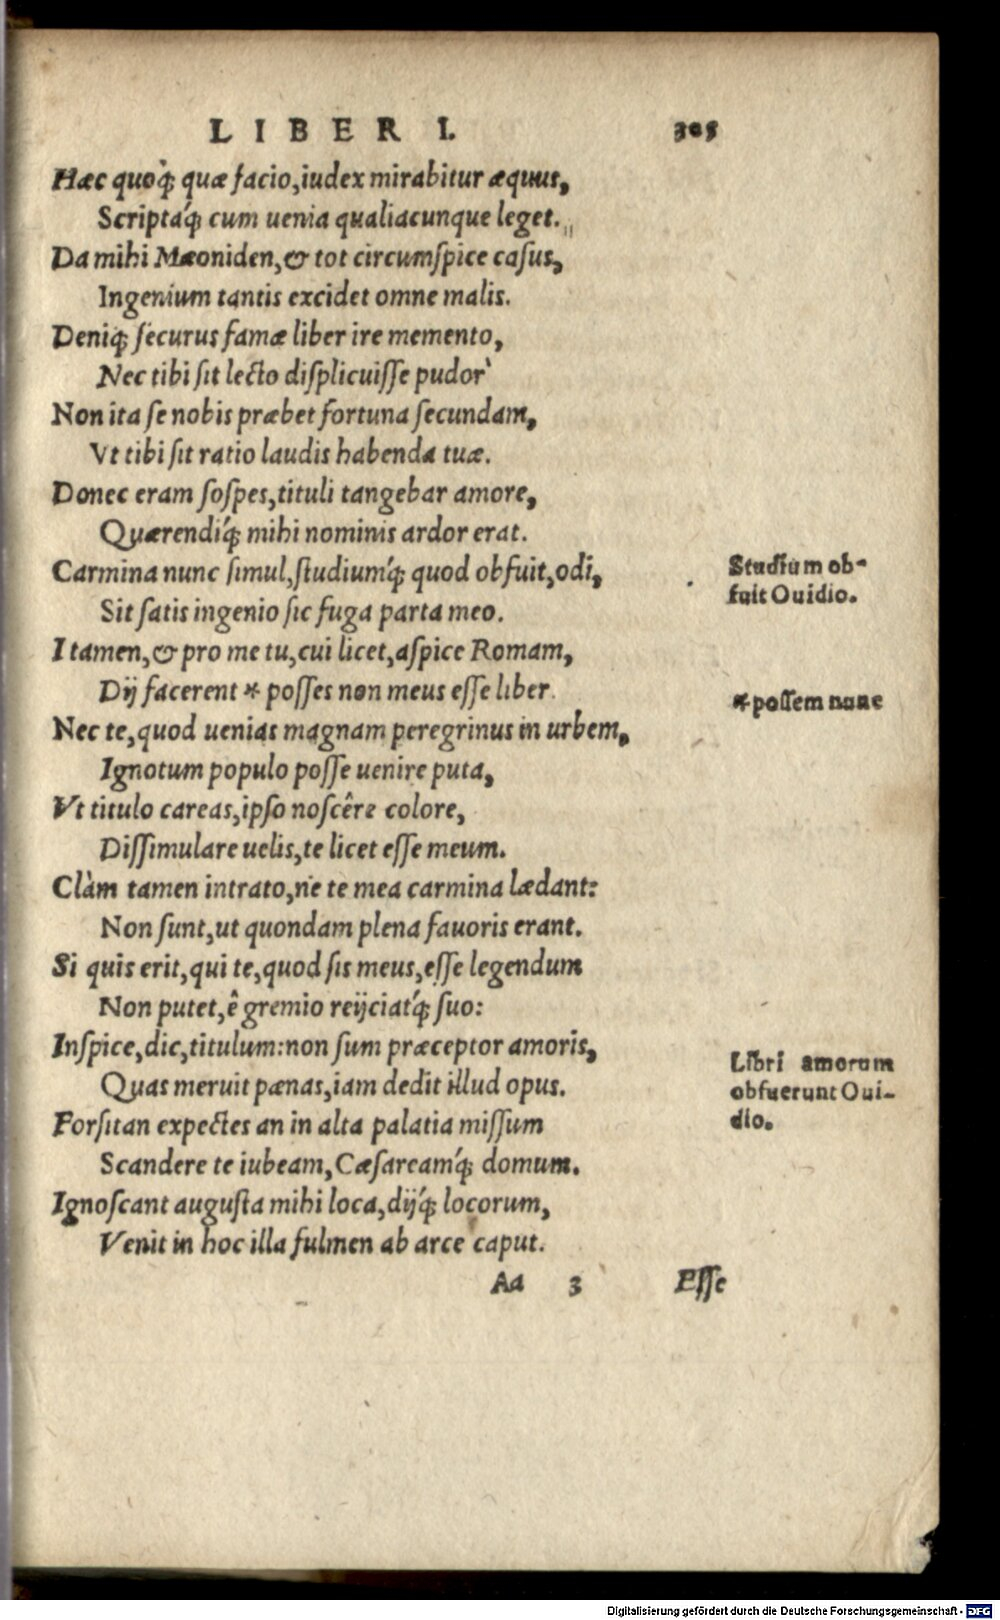 LIBER I. 305
Hæc quoq́; quæ facio, iudex mirabitur æquus,
Scriptáq́; cum uenia qualiacunque leget.
Da mihi Mæoniden, & tot circumſpice caſus,
Ingenium tantis excidet omne malis.
Deniq; ſecurus famæ liber ire memento,
Nec tibi ſit lecto diſplicuiſſe pudor
Non ita ſe nobis præbet fortuna ſecundam,
Vt tibi ſit ratio laudis habenda tuæ.
Donec eram ſoſpes, tituli tangebar amore,
Quærendíq́; mihi nominis ardor erat.
Carmina nunc ſimul, ſtudiumq́; quod obfuit, odi,
Studium ob-
fuit Ouidio.
Sit ſatis ingenio ſic fuga parta meo.
I tamen, & pro me tu, cui licet, aſpice Romam,
Dij facerent * poſſes non meus eſſe liber.
*poſſem nunc
Nec te, quod uenias magnam peregrinus in urbem,
Ignotum populo poſſe uenire puta,
Vt titulo careas, ipſo noſcêre colore,
Diſſimulare uelis, te licet eſſe meum.
Clàm tamen intrato, ne te mea carmina lædant:
Non ſunt, ut quondam plena fauoris erant.
Si quis erit, qui te, quod ſis meus, eſſe legendum
Non putet, ê gremio reijciatq́; ſuo:
Inſpice, dic, titulum: non ſum præceptor amoris,
Quas meruit pœnas, iam dedit illud opus.
Libri amorum
obfuerunt Oui-
dio.
Forſitan expectes an in alta palatia miſſum
Scandere te iubeam, Cæſareamq́; domum.
Ignoſcant auguſta mihi loca, dijq́; locorum,
Venit in hoc illa fulmen ab arce caput.
Aa 3 Eſſe
Digitalisierung gefördert durch die Deutsche Forschungsgemeinschaft - DFG